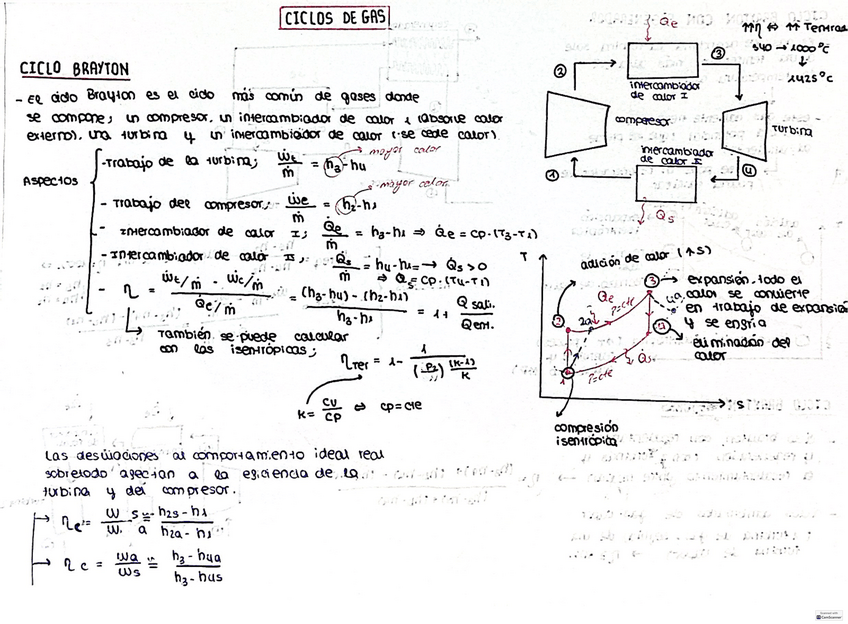 CICLOS DE GAS
CICLO BRAYTON
- El ciclo Brayton es el ciclo más común de gases donde
se compone; un compresor, un intercambiador de calor I (absorve calor
externo), una turbina y un intercambiador de calor (se cede calor).
Aspectos
- Trabajo de la turbina; ẇt/ṁ = h3 - h4 → mayor calor
- Trabajo del compresor; ẇc/ṁ = h2 - h1 → mayor calor
- Intercambiador de calor I; Q̇e/ṁ = h3 - h1 ⇒ Q̇e = cp·(T3-T1)
- Intercambiador de calor II; Q̇s/ṁ = h4 - h1 = → Q̇s > 0
⇒ Q̇s = cp·(T4-T1)
- η = (ẇt/ṁ - ẇc/ṁ)/(Q̇e/ṁ) = ((h3-h4) - (h2-h1))/(h3-h1) = 1 + Q sali./Q ent.
También se puede calcular
con las isentrópicas;
ηTer = 1 - 1/(P2/ )(k-1)/k
k = cv/cp ⇔ cp = cte
Las desviaciones al comportamiento ideal real
sobretodo afectan a la eficiencia de la
turbina y del compresor.
→ ηc = w s/w a = (h2s - h1)/(h2a - h1)
→ ηc = wa/ws = (h3 - h4a)/(h3 - h4s)
↑↑η ⇔ ↑↑ Tentras
540 → 1000ºC
↓
1425ºC
Q̇e
②
③
intercambiador
de calor I
compresor
turbina
intercambiador
de calor II
①
④
Q̇s
T
adición de calor (↑S)
③ → expansión, todo el
calor se convierte
en trabajo de expansión
y se enfría
Q̇e
P=cte
2
2a
4a
④ → eliminación del
calor
Q̇s
P=cte
1
S
compresión
isentrópica